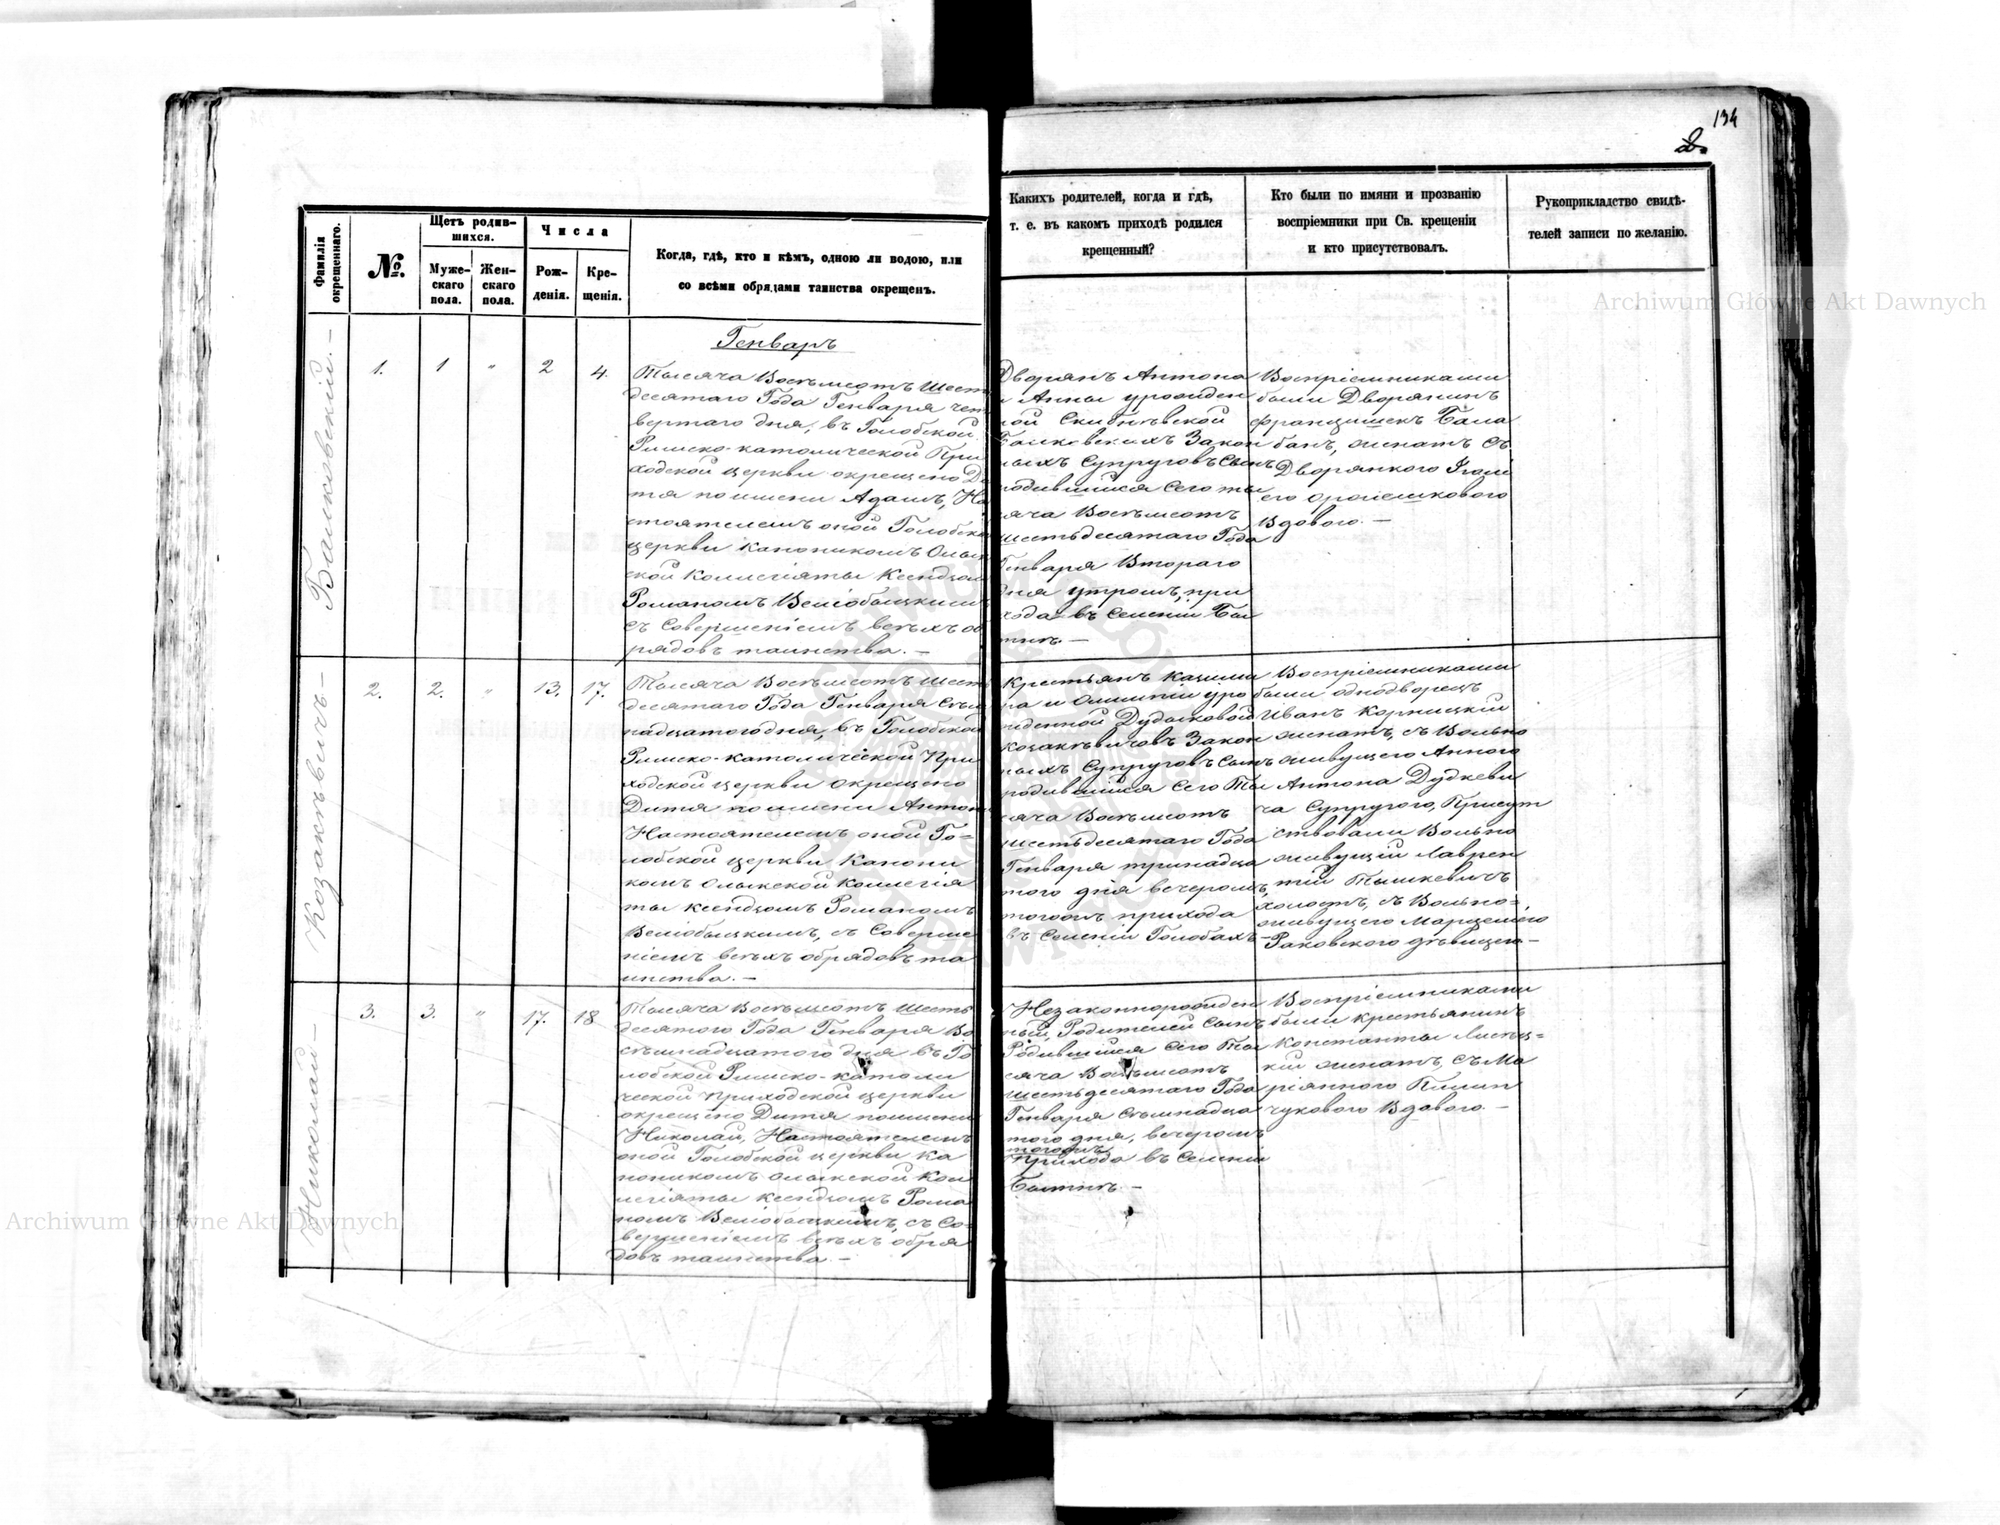 134
2.
Фамилія окрещеннаго.
№.
Щетъ родив-
шихся.
Муже-
скаго
пола.
Жен-
скаго
пола.
Числа
Рож-
денія.
Кре-
щенія.
Когда, гдѣ, кто и кѣмъ, одною ли водою, или
со всѣми обрядами таинства окрещенъ.
Какихъ родителей, когда и гдѣ,
т. е. въ какомъ приходѣ родился
крещенный?
Кто были по имяни и прозванію
воспріемники при Св. крещеніи
и кто присутствовалъ.
Рукоприкладство свидѣ-
телей записи по желанію.
Генварь
Балковскій.—
1.
1
"
2
4.
Тысяча Восемьсотъ Шесть
десятаго Года Генваря чет
вертаго дня, въ Голобской
Римско-католической При
ходской церкви окрещено Ди
тя по имени Адамъ, На
стоятелемъ оной Голобской
церкви Каноникомъ Олык
ской Коллегіяты Ксендзом
Романомъ Веліобыцкимъ
съ Совершеніемъ всѣхъ об
рядовъ таинства.—
Дворянъ Антона
и Анны урожден
ной Скибневской
Балковскихъ Закон
ныхъ Супруговъ Сынъ
родившійся Сего ты
сяча Восемьсотъ
шестьдесятаго Года
Генваря Втораго
дня утромъ, при
хода въ Селеніи
Воспріемниками
были Дворянинъ
Францишекъ Бала
банъ, женатъ съ
Дворянкого
Вдового.—
Козакѣвичъ—
2.
2.
"
13.
17.
Тысяча Восемьсотъ Шесть
десятаго Года Генваря Сем
надцатого дня, въ Голобской
Римско-католической При
ходской церкви окрещено
Дитя по имени Антонъ
Настоятелемъ оной Го=
лобской церкви Канони
комъ Олыкской Коллегія
ты Ксендзомъ Романомъ
Веліобыцкимъ, съ Соверше
ніемъ всѣхъ обрядовъ та
инства.—
Крестьянъ Казими
ра и Олимпіи уро
жденной Дудыковой
Козакѣвичовъ Закон
ныхъ Супруговъ Сынъ
родившійся Сего Ты
сяча Восемьсотъ
шестьдесятаго Года
Генваря тринадца
того дня вечеромъ,
тогожъ прихода
въ Селеніи Голобахъ
Воспріемниками
были однодворецъ
Иванъ Корницкій
женатъ, съ Вольно
живущего Анного
Антона Дудкеви
ча Супругого, Присут
ствовали Вольно
живущій Лаврен
тій Тышкевичъ
холостъ, съ Вольно=
живущего Марцелего
Раковского дѣвицею—
Николай—
3.
3.
"
17.
18
Тысяча Восемьсотъ Шесть
десятого Года Генваря Во
семнадцатого дня въ Го
лобской Римско-католи
ческой Приходской церкви
окрещено Дитя по имени
Николай, Настоятелемъ
оной Голобской церкви Ка
ноникомъ Олыкской Кол
легіяты Ксендзомъ Рома
номъ Веліобыцкимъ, съ Со
вершеніемъ всѣхъ обря
довъ таинства.—
Незаконнорожден
ный, Родителей Сынъ
Родившійся Сего Ты
сяча Восемьсотъ
шестьдесятаго Года
Генваря Семнадца
того дня, вечеромъ
тогожъ
Прихода въ Селеніи
Воспріемниками
были Крестьянинъ
Константы
кій женатъ, съ Ма
ріянного Пилип
чукового Вдового.—
Archiwum Główne Akt Dawnych
Archiwum Główne Akt Dawnych